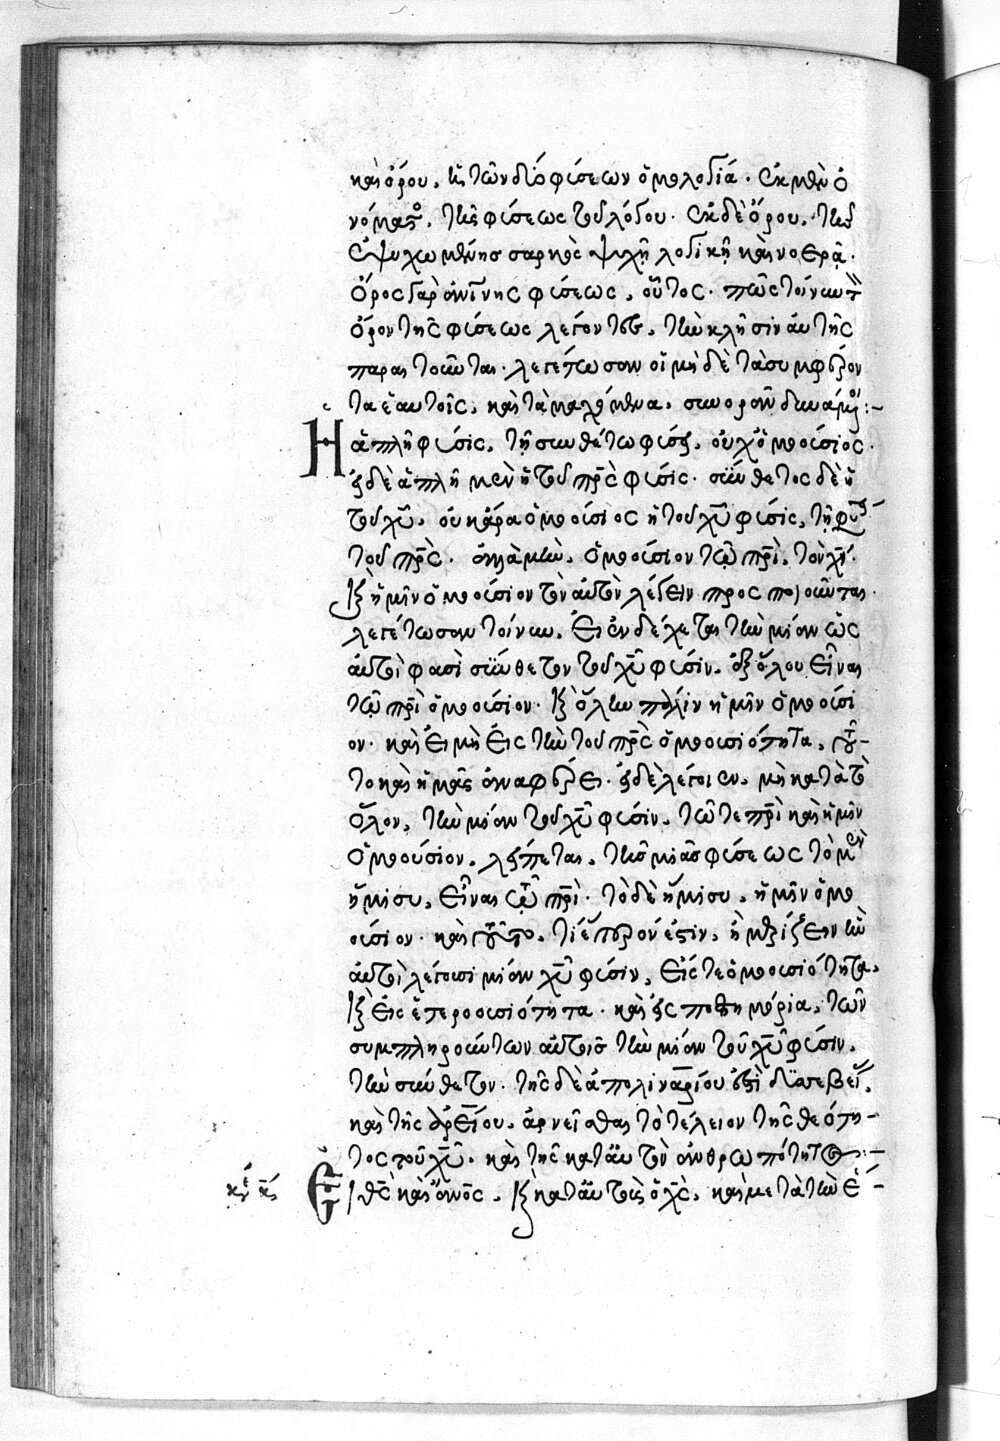 καὶ ὅρου. ἡ τῶν δύο φύσεων ὁμολογία. ἐκ μὲν ὀ
νόματος, τῆς φύσεως τοῦ λόγου. ἐκ δὲ ὅρου, τῆς
ἐψυχωμένης σαρκὸς ψυχῇ λογικῇ καὶ νοερᾷ.
ὅρος γὰρ φύσεως, οὗτος. πῶς τοίνυν τὸν
ὅρον τῆς φύσεως λέγοντες, τὴν κλῆσιν αὐτῆς
παραιτοῦνται. λεγέτωσαν οἱ μηδὲ τὰ συμφέρον
τα ἑαυτοῖς, καὶ τὰ μαχόμενα, συνορᾶν δυνάμενοι:–
Ἡ ἁπλῆ φύσις, τῇ συνθέτῳ φύσει, οὐχ ὁμοούσιος.
εἰ δὲ ἁπλῆ μὲν ἡ τοῦ πρς φύσις. σύνθετος δὲ ἡ
τοῦ χυ. οὐκ ἄρα ὁμοούσιος ἡ τοῦ χυ φύσις, τῇ φύσει
τοῦ πρς. ἀλλὰ μὴν, ὁμοούσιον τῷ πρι, τὸν χν.
καὶ ἡμῖν ὁμοούσιον τὸν αὐτὸν λέγειν προσποιοῦνται.
λεγέτωσαν τοίνυν, εἰ ἐνδέχεται τὴν μίαν ὥς
αὐτοί φασι σύνθετον τοῦ χυ φύσιν, ἐξ ὅλου εἶναι
τῷ πρι ὁμοούσιον. καὶ ὅλην πάλιν ἡμῖν ὁμοούσι
ον. καὶ εἰ μὴ εἰς τὴν τοῦ πρς ὁμοουσιότητα, τοῦ–
το καὶ ἡμᾶς ἀναφέρει. εἰ δὲ λέγοιεν, μὴ κατὰ τὸ
ὅλον, τὴν μίαν τοῦ χυ φύσιν, τῷ τε πρι καὶ ἡμῖν
ὁμοούσιον, λείπεται, τῆς μιᾶς φύσεως τὸ μὲν
ἥμισυ, εἶναι τῷ πρι. τὸ δὲ ἥμισυ, ἡμῖν ὁμο
ούσιον. καὶ τοῦτο, τί ἕτερόν ἐστιν, ἢ μερίζειν ἣν
αὐτοὶ λέγουσι μίαν χυ φύσιν, εἴς τε ὁμοουσιότητα,
καὶ εἰς ἑτεροουσιότητα. καὶ εἰς ποῖα μόρια, τῶν
συμπληρούντων αὐτοῖς τὴν μίαν τοῦ χυ φύσιν,
τὴν σύνθετον. τῆς δὲ ἀπολιναρίου ἐστὶ δυσσεβείας,
καὶ τῆς ἀρείου, ἀρνεῖσθαι τὸ τέλειον τῆς θεότη–
τος τοῦ χυ. καὶ τῆς κατ' αὐτὸν ἀνθρωπότητος:–
Εἰ θς καὶ ἄνος, καὶ κατ' αὐτοὺς ὁ χς, καὶ μετὰ τὴν ἕ–